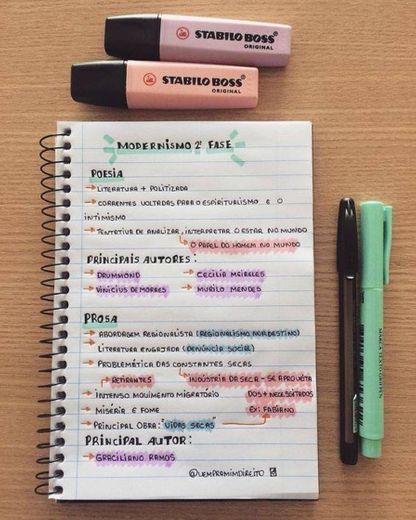 STABILO BOSS
ORIGINAL
STABILO BOSS
ORIGINAL
MODERNISMO 2ª FASE
POESIA
→ LITERATURA + POLITIZADA
→ CORRENTES VOLTADAS PARA O ESPIRITUALISMO E O
INTIMISMO
→ TENTATIVA DE ANALISAR, INTERPRETAR O ESTAR NO MUNDO
O PAPEL DO HOMEM NO MUNDO
PRINCIPAIS AUTORES:
→ DRUMMOND → CECÍLIA MEIRELES
→ VINICIUS DE MORAES → MURILO MENDES
PROSA
→ ABORDAGEM REGIONALISTA (REGIONALISMO NORDESTINO)
→ LITERATURA ENGAJADA (DENÚNCIA SOCIAL)
→ PROBLEMÁTICA DAS CONSTANTES SECAS
RETIRANTES INDÚSTRIA DA SECA - SE APROVEITA
→ INTENSO MOVIMENTO MIGRATÓRIO DOS + NECESSITADOS
→ MISÉRIA E FOME EX: FABIANO
→ PRINCIPAL OBRA: "VIDAS SECAS"
PRINCIPAL AUTOR:
→ GRACILIANO RAMOS
@VEMPRAMIMDIREITO